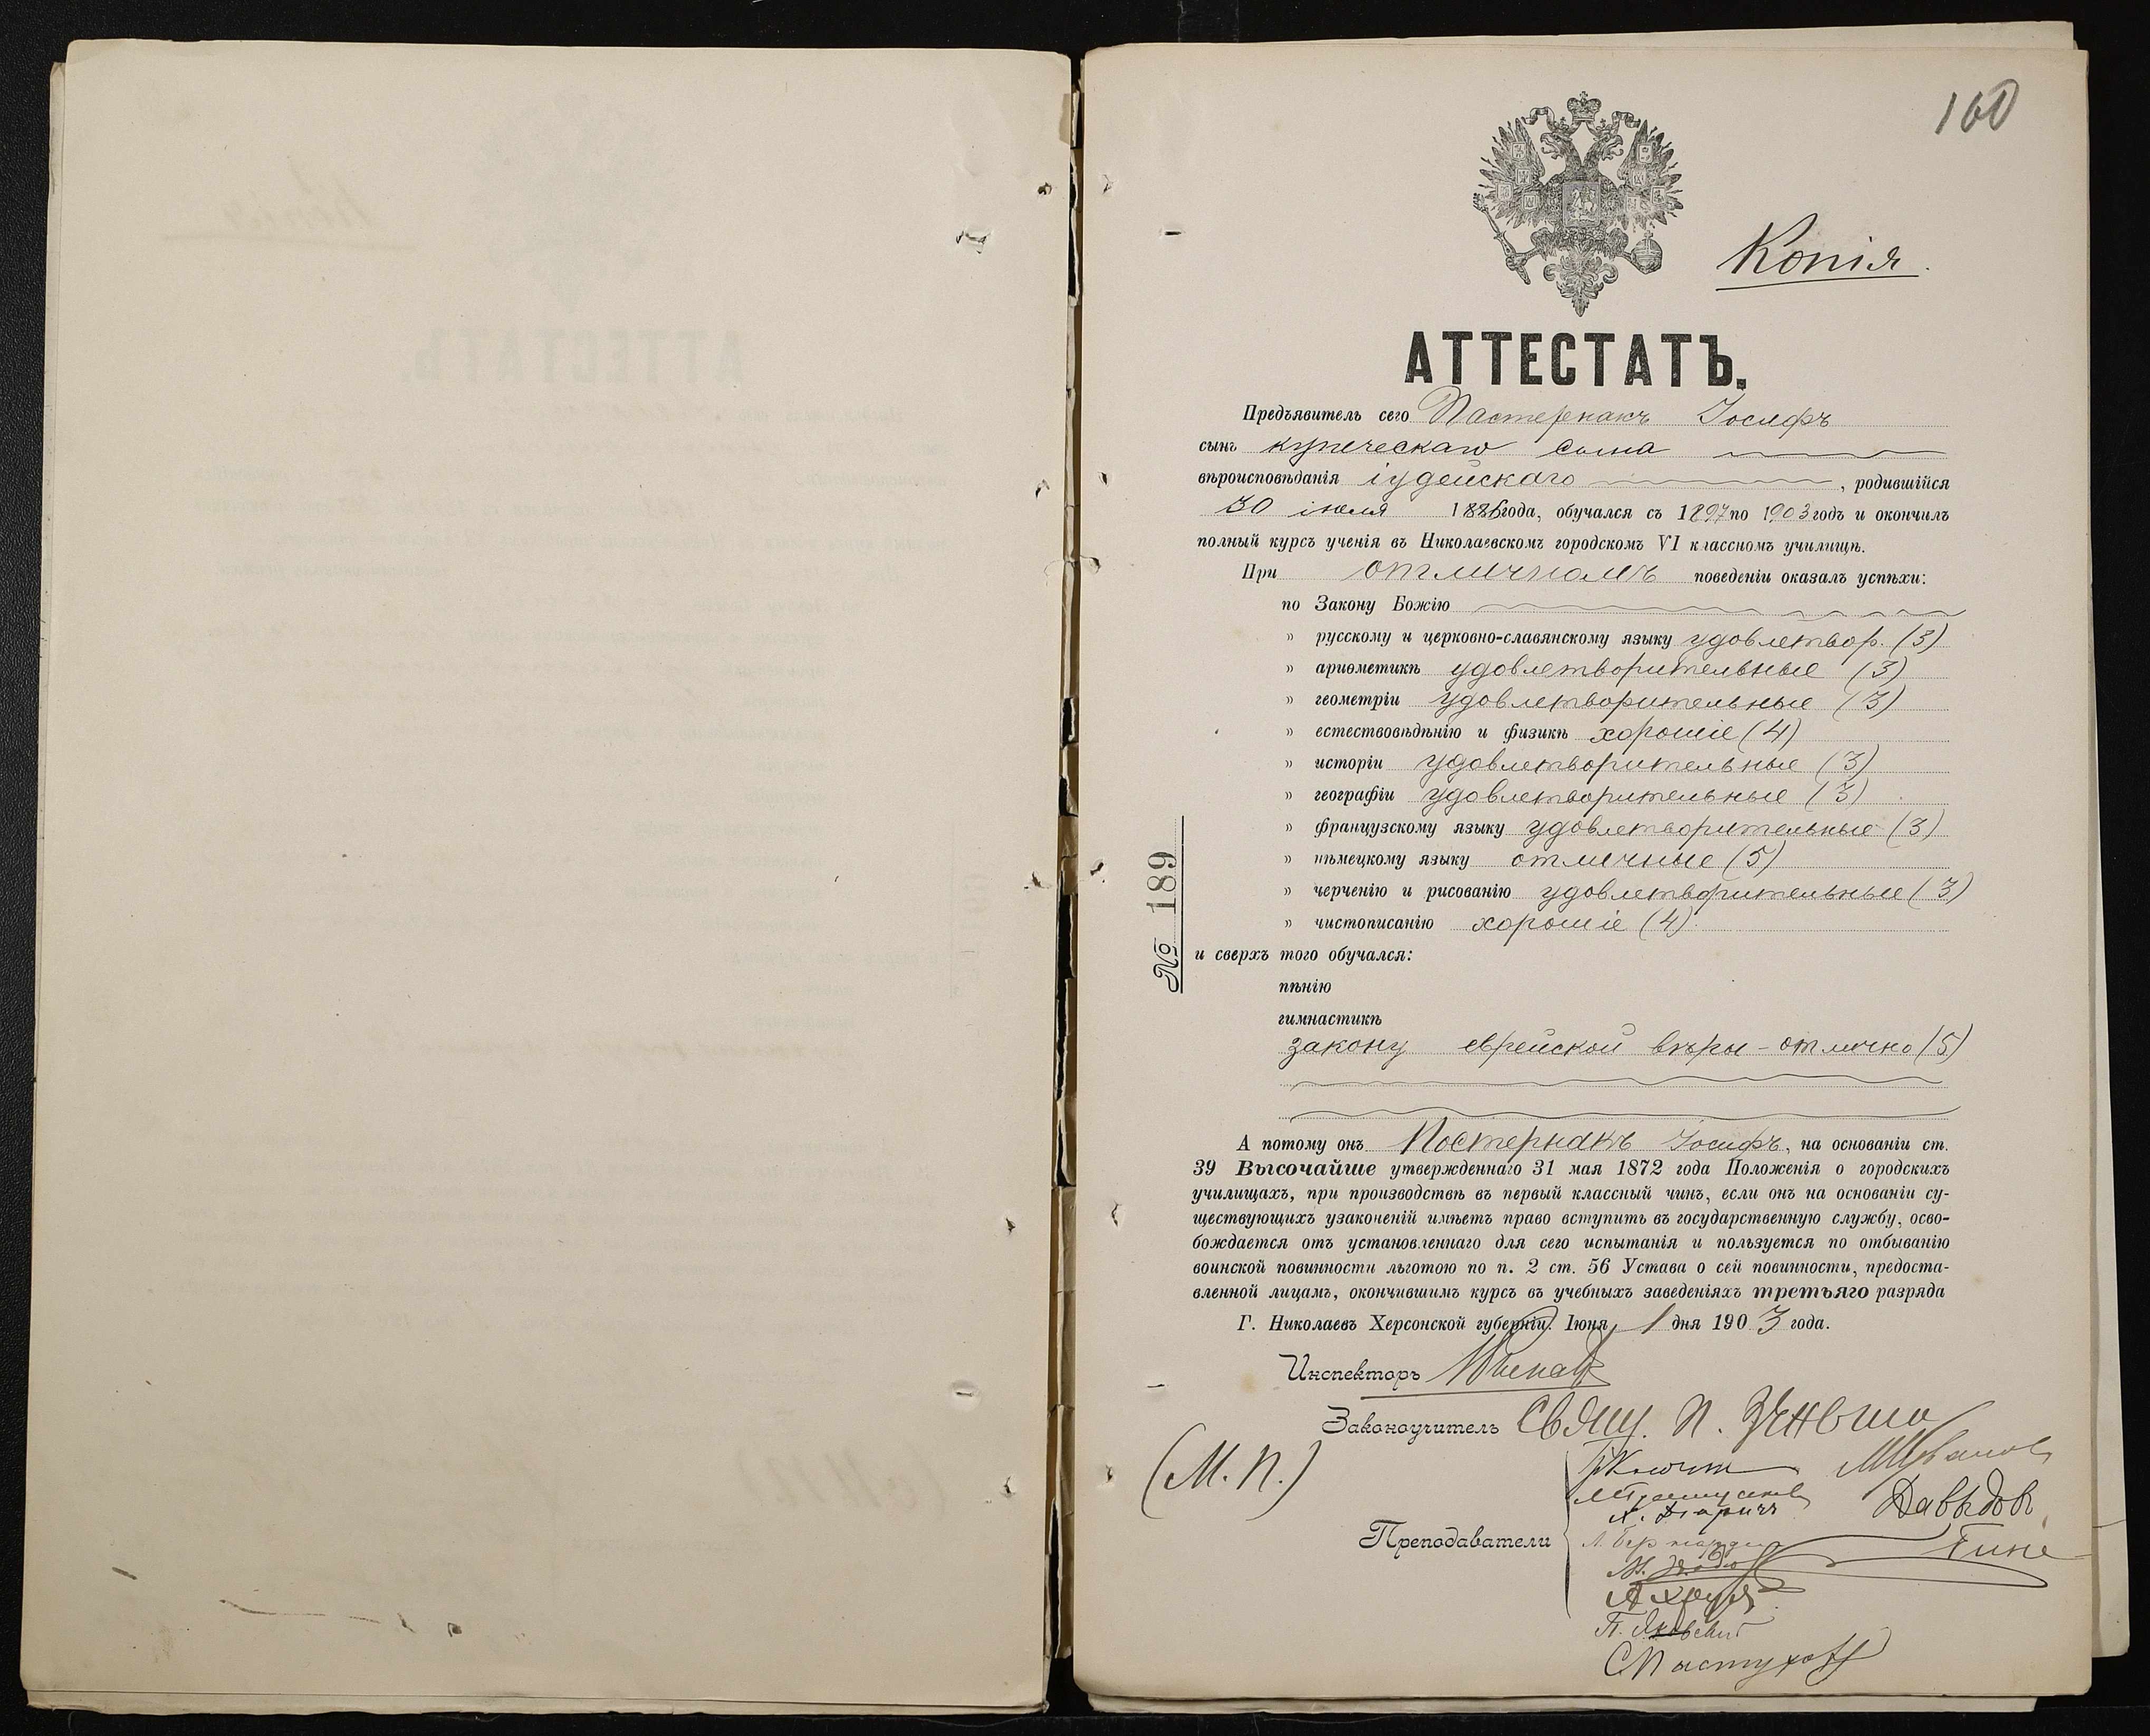 160
Копія.
АТТЕСТАТЪ.
Предъявитель сего Пастернакъ Іосифъ
сынъ купеческаго сына
вѣроисповѣданія іудейскаго, родившійся
30 іюля 1886 года, обучался съ 1897 по 1903 годъ и окончилъ
полный курсъ ученія въ Николаевскомъ городскомъ VI классномъ училищѣ.
При отличномъ поведеніи оказалъ успѣхи:
по Закону Божію
» русскому и церковно-славянскому языку удовлетвор. (3)
» ариѳметикѣ удовлетворительные (3)
» геометріи удовлетворительные (3)
» естествовѣдѣнію и физикѣ хорошіе (4)
» исторіи удовлетворительные (3)
» географіи удовлетворительные (3)
» французскому языку удовлетворительные (3)
» нѣмецкому языку отличные (5)
» черченію и рисованію удовлетворительные (3)
» чистописанію хорошіе (4).
№ 189
и сверхъ того обучался:
пѣнію
гимнастикѣ
закону еврейской вѣры - отлично (5)
А потому онъ Постернакъ Іосифъ, на основаніи ст.
39 Высочайше утвержденнаго 31 мая 1872 года Положенія о городскихъ
училищахъ, при производствѣ въ первый классный чинъ, если онъ на основаніи су-
ществующихъ узаконеній имѣетъ право вступить въ государственную службу, осво-
бождается отъ установленнаго для сего испытанія и пользуется по отбыванію
воинской повинности льготою по п. 2 ст. 56 Устава о сей повинности, предоста-
вленной лицамъ, окончившимъ курсъ въ учебныхъ заведеніяхъ третьяго разряда
Г. Николаевъ Херсонской губерніи. Іюня 1 дня 1903 года.
Инспекторъ
Законоучитель Свящ. П.
(М. П.)
Преподаватели
Давыдовъ
Гине
П. Яковевит
С. Пастухов